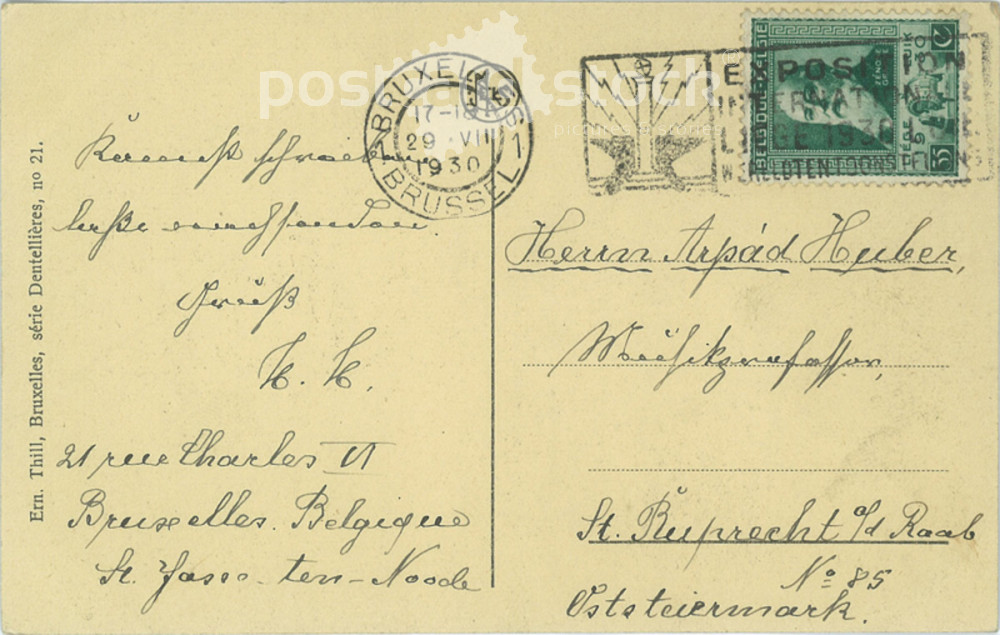 Ern. Thill, Bruxelles, série Dentellières, no 21.
Gruß
21 rue Charles VI
Bruxelles. Belgique
St. Josse-ten-Noode
BRUXELLES
17-18
29 VIII
1930
1 1
BRUSSEL
EXPOSITION
INTERNATIONALE
LIEGE 1930 LUIK
WERELDTENTOONSTELLING
BELGIQUE-BELGIË
ZENOBE
GRAMME
LIEGE
LUIK
1930
35
C
Herrn Arpád Huber,
Musikprofessor,
St. Ruprecht a/d Raab
No 85
Oststeiermark.